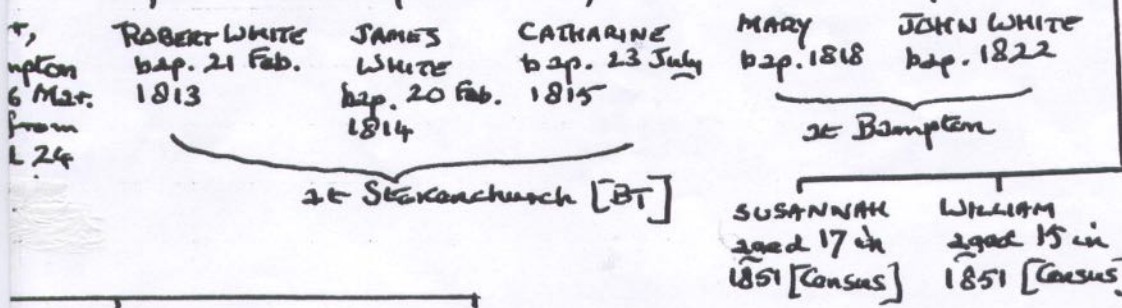 mpton
6 Mar.
from
24
ROBERT WHITE
bap. 21 Feb.
1813
JAMES
WHITE
bap. 20 Feb.
1814
CATHARINE
bap. 23 July
1815
at Stokenchurch [BT]
MARY
bap. 1818
JOHN WHITE
bap. 1822
at Bampton
SUSANNAH
aged 17 in
1851 [Census]
WILLIAM
aged 15 in
1851 [Census]